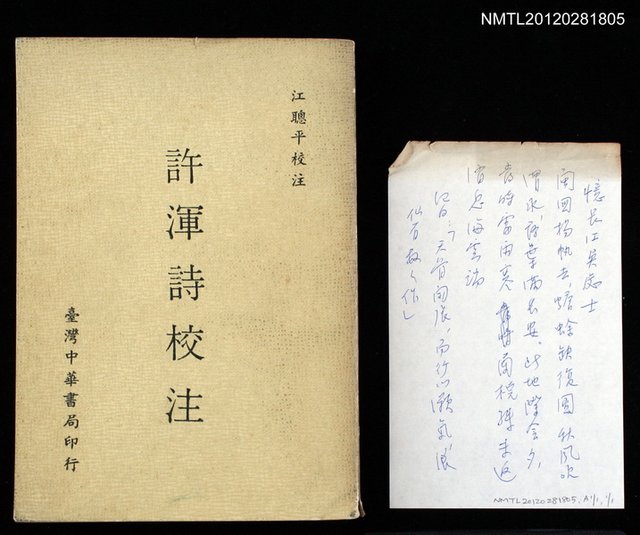 NMTL20120281805
江聰平校注
許渾詩校注
臺灣中華書局印行
憶長江吳處士
閩國揚帆去，蟾蜍缺復圓 秋風吹
渭水，落葉滿長安。此地際會夕，
當時雷雨寒 蘭橈殊未返
消息海雲端
NMTL20120281805, A1/1, 1/1